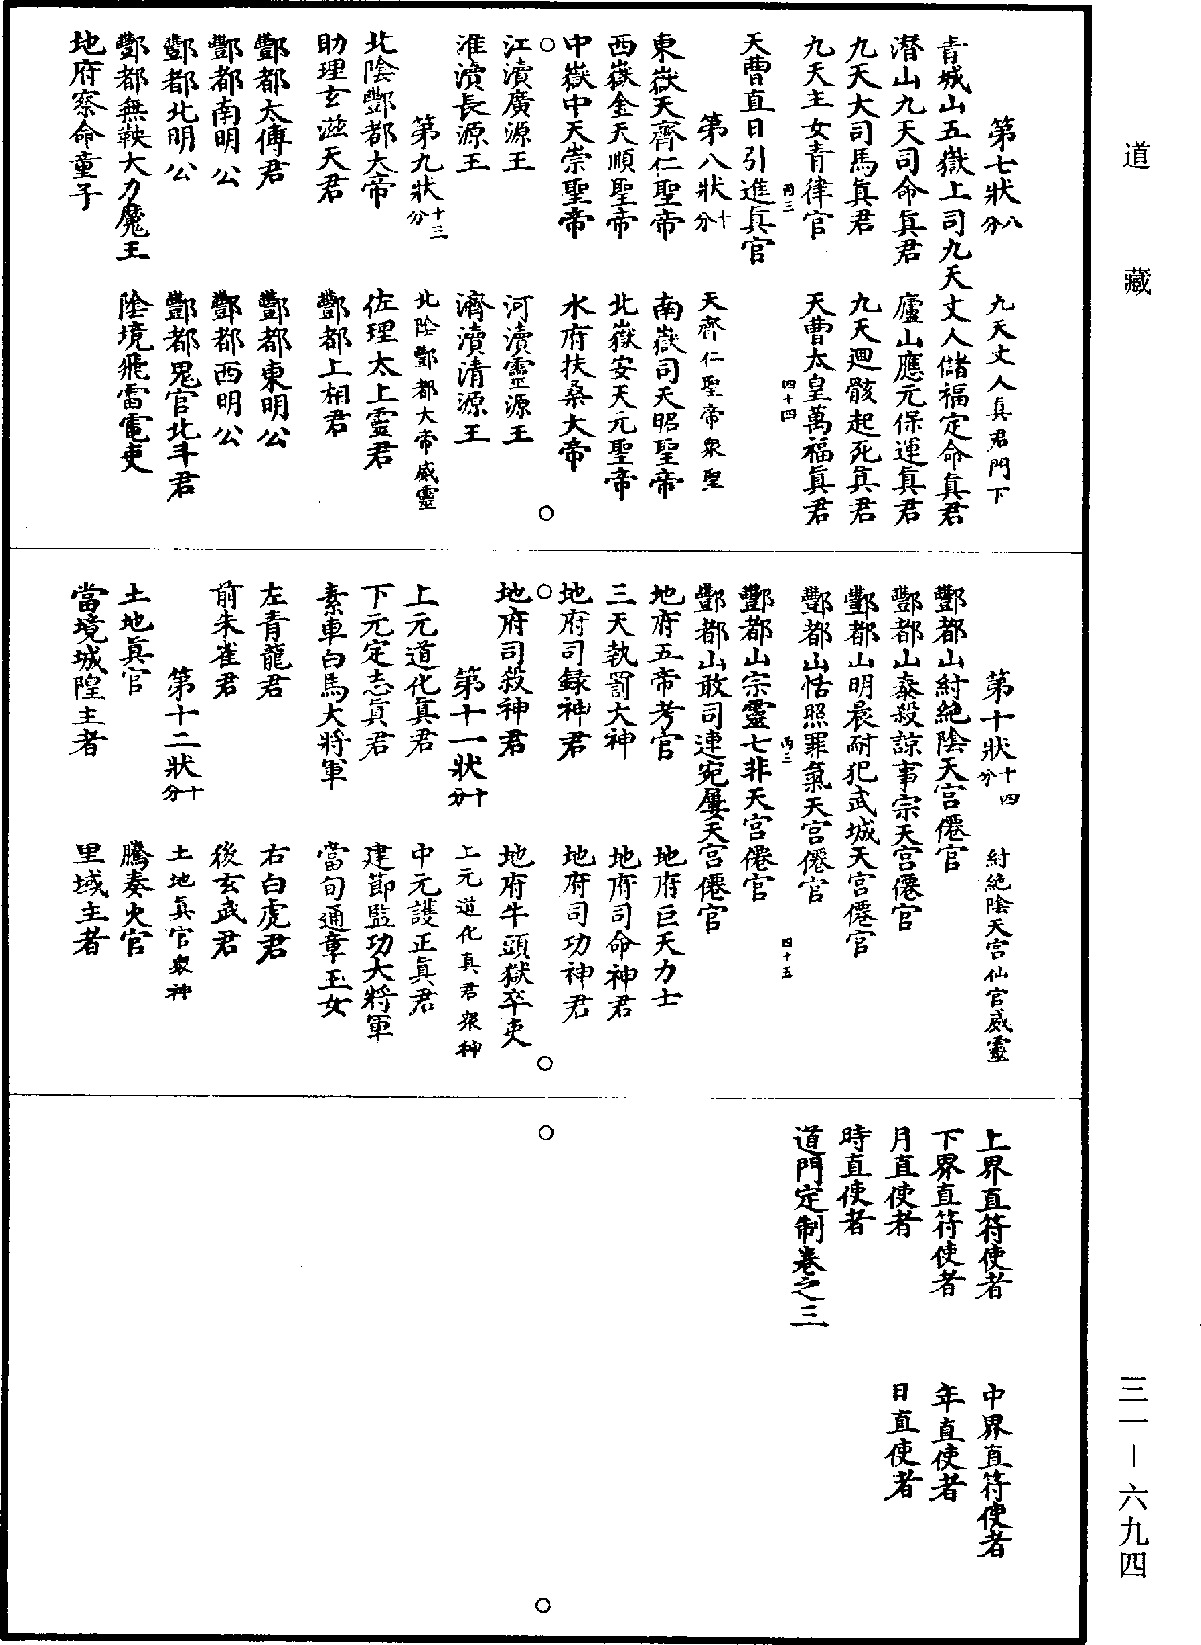 道藏
三一—六九四
第七狀八分　九天丈人真君門下
青城山五嶽上司九天丈人儲福定命真君
潛山九天司命真君　廬山應元保運真君
九天大司馬真君　九天迴骸起死真君
九天主女青律官　天曹太皇萬福真君
四三　四十四
天曹直日引進真官
第八狀十分　天齊仁聖帝衆聖
東嶽天齊仁聖帝　南嶽司天昭聖帝
西嶽金天順聖帝　北嶽安天元聖帝
中嶽中天崇聖帝　水府扶桑大帝
江瀆廣源王　河瀆靈源王
淮瀆長源王　濟瀆清源王
第九狀十三分　北陰酆都大帝威靈
北陰酆都大帝　佐理太上靈君
助理玄滋天君　酆都上相君
酆都太傅君　酆都東明公
酆都南明公　酆都西明公
酆都北明公　酆都鬼官北斗君
酆都無鞅大力魔王　陰境飛雷電吏
地府察命童子
第十狀十四分　紂絕陰天宫仙官威靈
酆都山紂絕陰天宫僊官
酆都山泰殺諒事宗天宫僊官
酆都山明晨耐犯武城天宫僊官
酆都山恬照罪氣天宫僊官
四三　四十五
酆都山宗靈七非天宫僊官
酆都山敢司連宛屢天宫僊官
地府五帝考官　地府巨天力士
三天執罰大神　地府司命神君
地府司録神君　地府司功神君
地府司殺神君　地府牛頭獄卒吏
第十一狀十分　上元道化真君衆神
上元道化真君　中元護正真君
下元定志真君　建節監功大將軍
素車白馬大將軍　當旬通章玉女
左青龍君　右白虎君
前朱雀君　後玄武君
第十二狀十分　土地真官衆神
土地真官　騰奏火官
當境城隍主者　里域主者
上界直符使者　中界直符使者
下界直符使者　年直使者
月直使者　日直使者
時直使者
道門定制卷之三